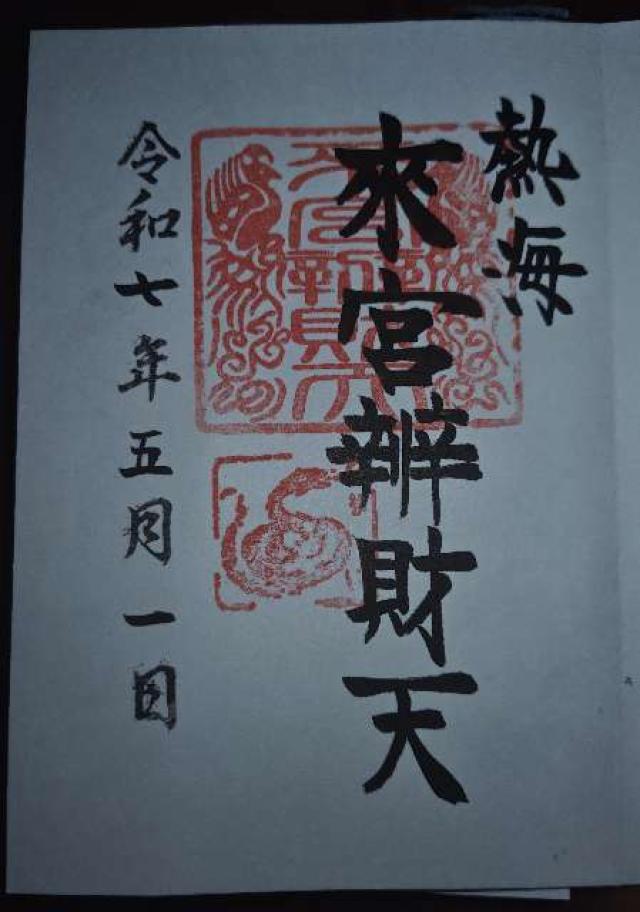 熱海
來宮辨財天
令和七年五月一日